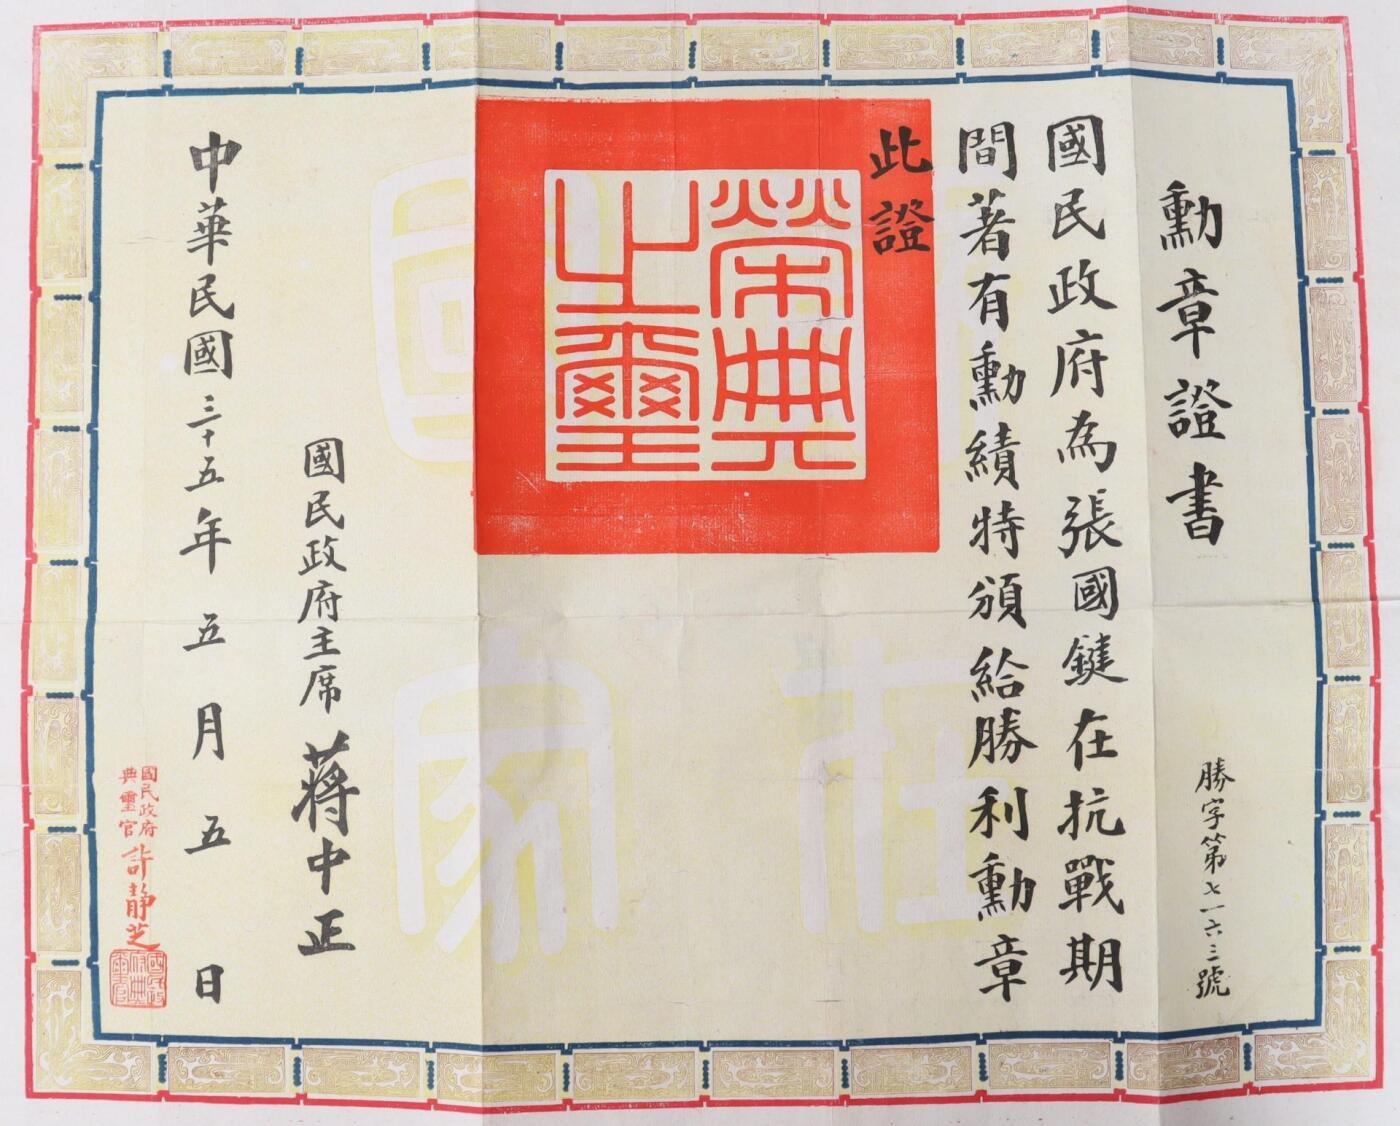 勳章證書
勝字第七一六三號
國民政府為張國鍵在抗戰期
間著有勳績特頒給勝利勳章
此證
榮典
之璽
國民政府主席 蔣中正
中華民國三十五年五月五日
國民政府
典璽官 許靜芝